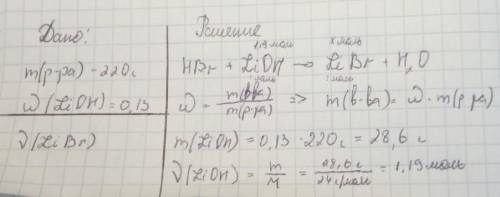 Дано:
m(р-ра) - 220 г
ω(LiOH) = 0,13
ν(LiBr)
Решение
1,19 моль х моль
HBr + LiOH → LiBr + H₂O
1 моль 1 моль
ω = m(в-ва)/m(р-ра) => m(в-ва) = ω · m(р-ра)
m(LiOH) = 0,13 · 220 г = 28,6 г
ν(LiOH) = m/M = 28,6 г/24 г/моль = 1,19 моль